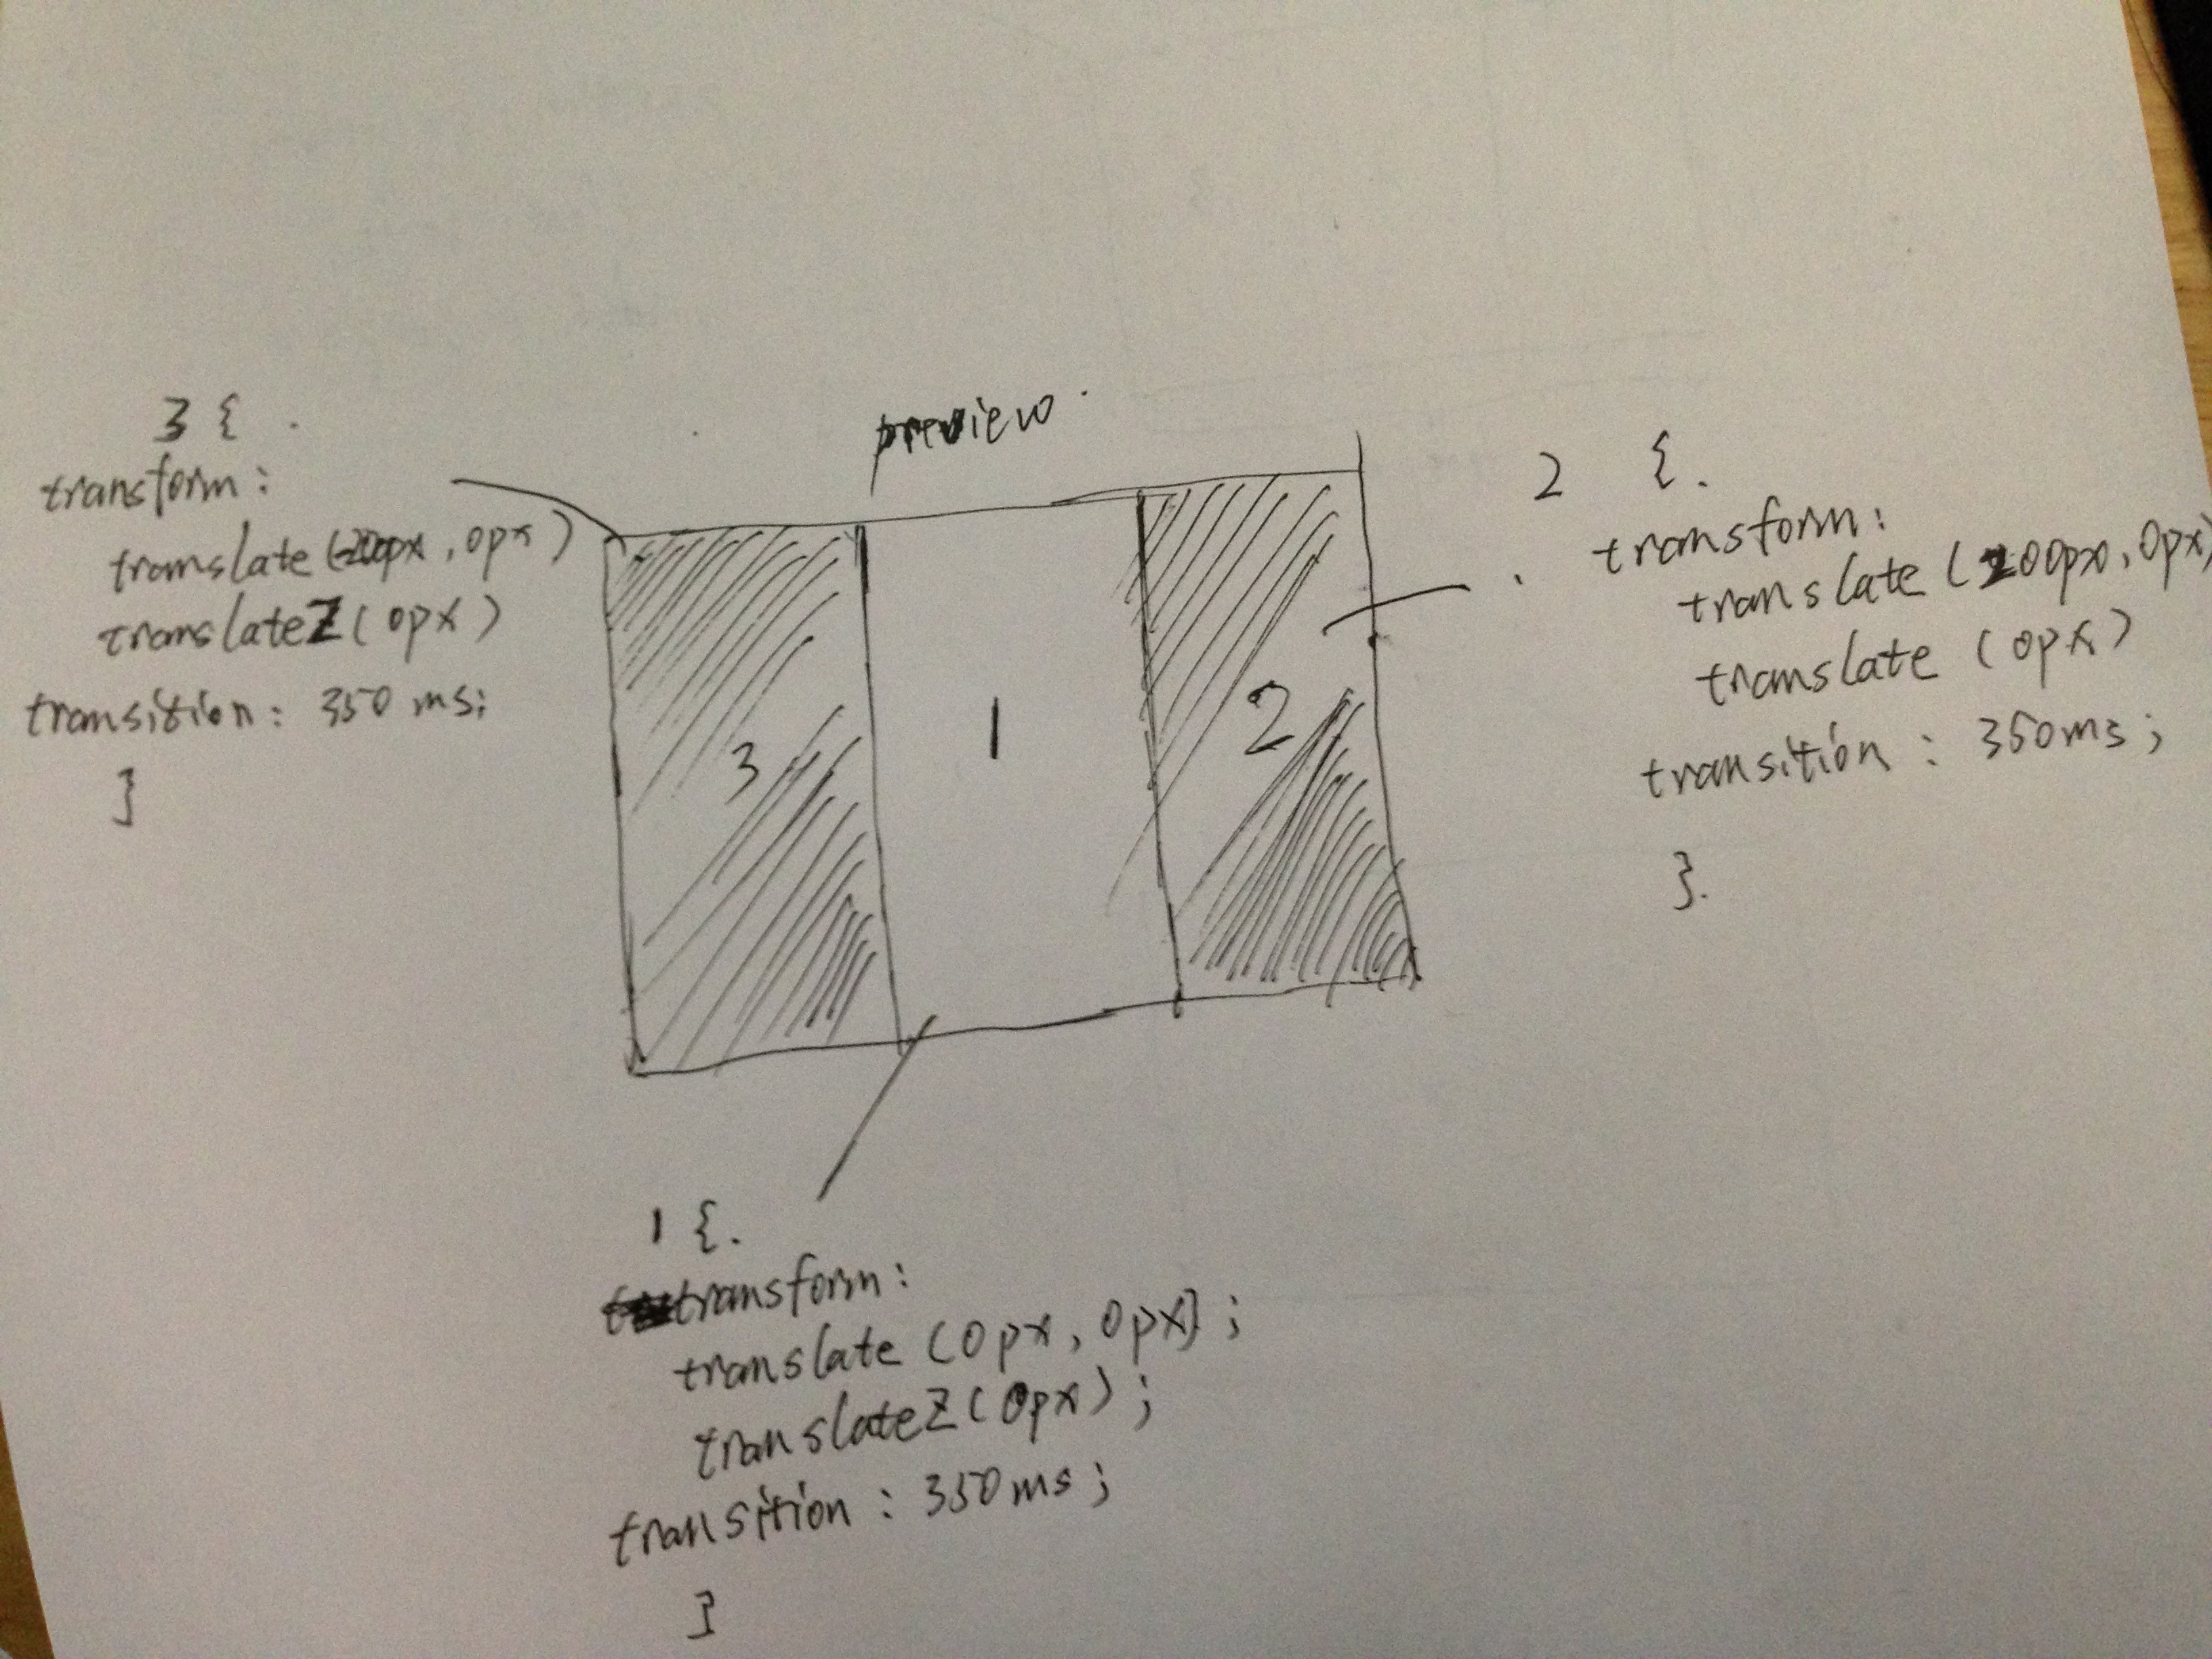 preview
3 {
transform:
translate(-200px, 0px)
translateZ(0px)
transition: 350 ms;
}
2 {.
transform:
translate(200px, 0px)
translate (0px)
transition : 350ms;
}.
3
1
2
1 {.
transform:
translate (0px, 0px);
translateZ(0px);
transition : 350ms;
}